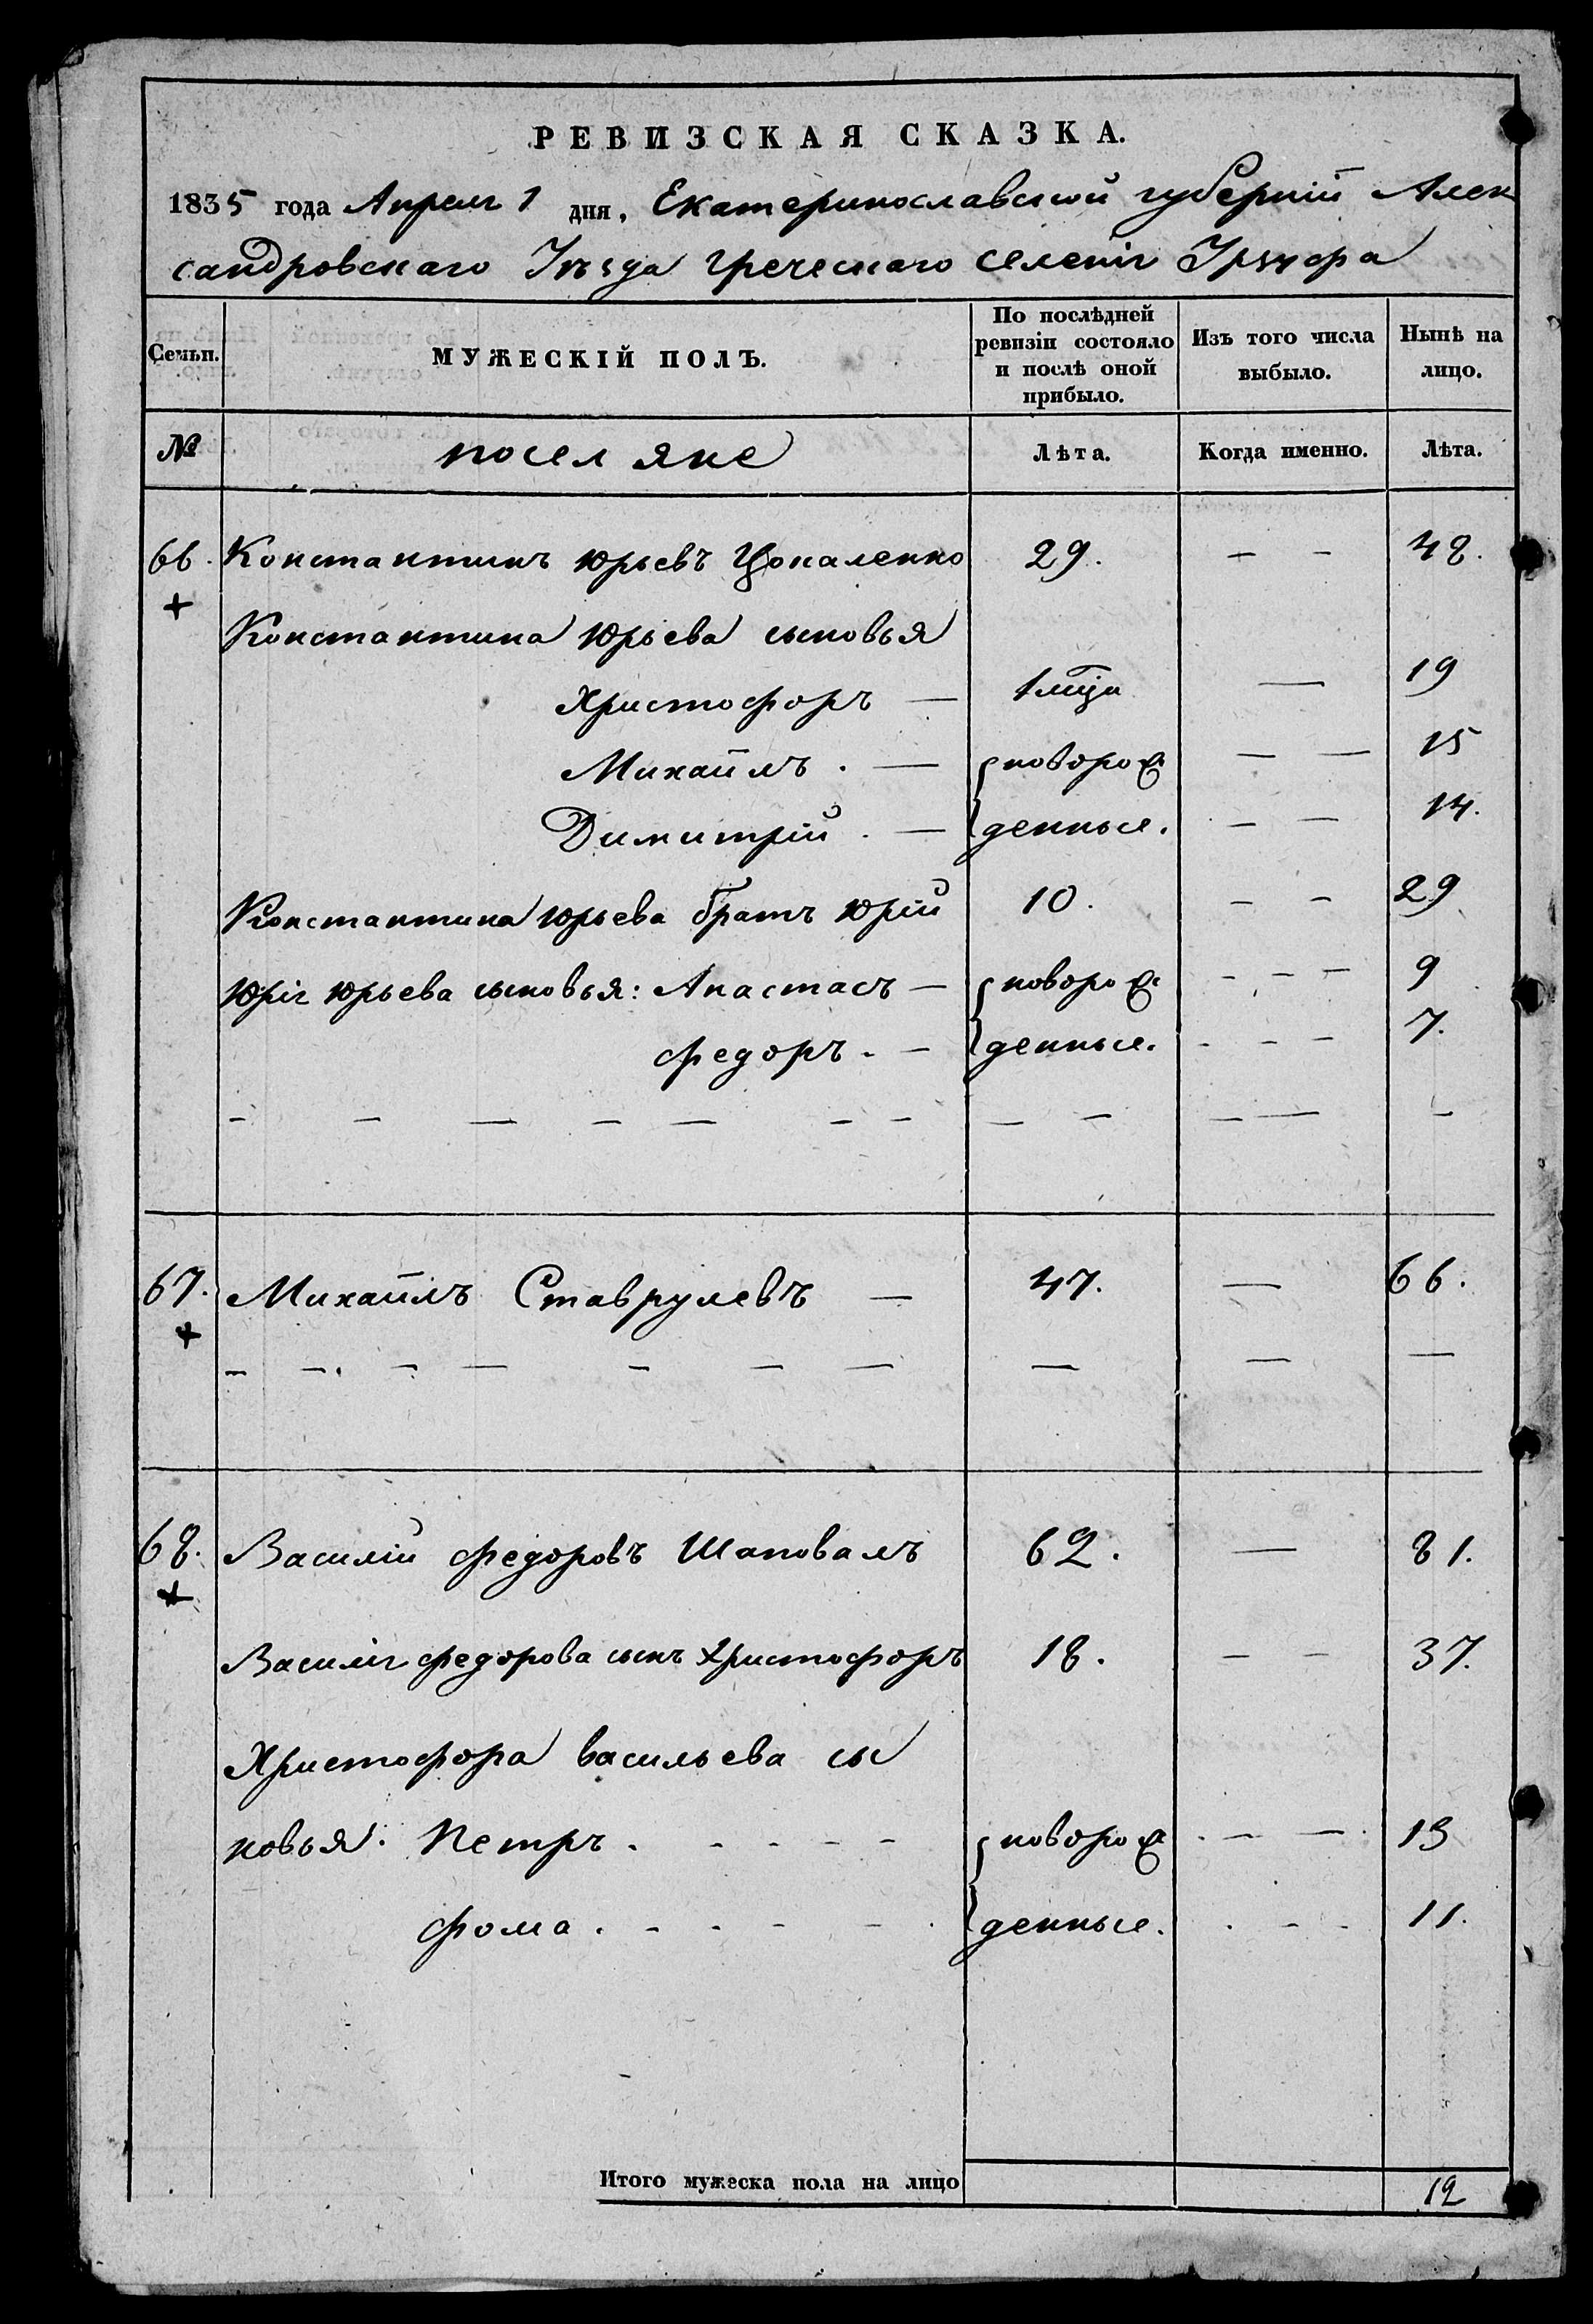 РЕВИЗСКАЯ СКАЗКА.
1835 года Апреля 1 дня, Екатеринославской губерніи Алек
сандровскаго Уѣзда греческаго селенія Урзуфа
Семьи. МУЖЕСКІЙ ПОЛЪ. По послѣдней ревизіи состояло и послѣ оной прибыло. Изъ того числа выбыло. Нынѣ на лицо.
№ поселяне Лѣта. Когда именно. Лѣта.
66. Константинъ Юрьевъ Цокаленко 29. - - 48.
+
Константина Юрьева сыновья
Христофоръ — 1 мѣца — 19
Михаилъ . — новорож — — 15
Димитрій . — денные. — — 14.
Константина Юрьева братъ Юрій 10. - - 29
Юрія Юрьева сыновья: Анастасъ — новорож - - - 9
Федоръ . — денные. - - - 7.
67. Михаилъ Ставрулевъ — 47. — 66.
+
68. Василій Федоровъ Шаповалъ 62. — 81.
+
Василія Федорова сынъ Христофоръ 18. - - 37.
Христофора Васильева сы
новья. Петръ . - - - - новорож . - — . 13
Фома . - - - - . денные. . - - 11.
Итого мужеска пола на лицо 12